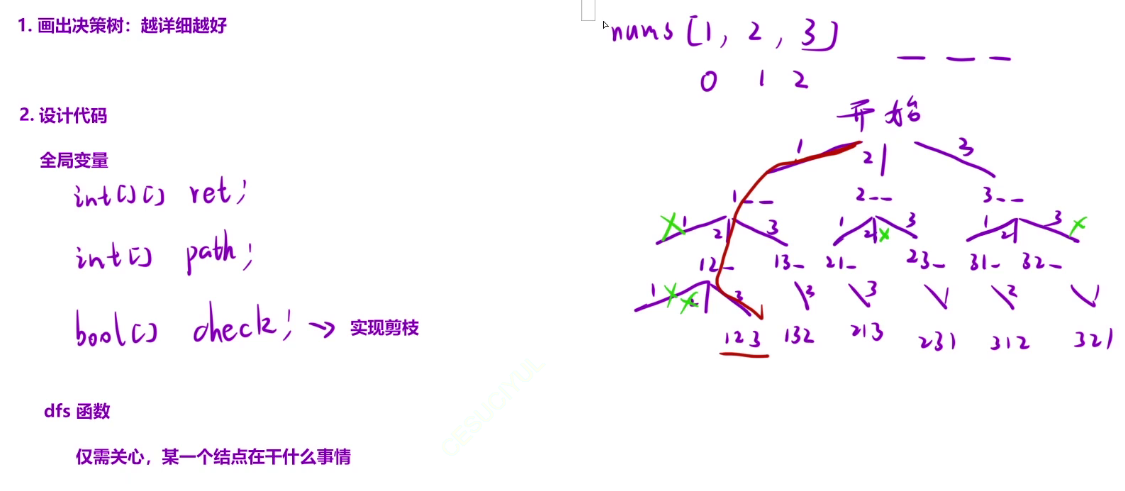 1. 画出决策树：越详细越好
2. 设计代码
全局变量
int[][] ret;
int[] path;
bool[] check; → 实现剪枝
dfs 函数
仅需关心，某一个结点在干什么事情
nums [1, 2, 3]
0 1 2
_ _ _
开始
1 2 3
1_ _ 2_ _ 3_ _
X 1 2 3 1 2 X 3 1 2 3 X
12_ 13_ 21_ 23_ 31_ 32_
1 X X 2 3 2 3 2
123 132 213 231 312 321